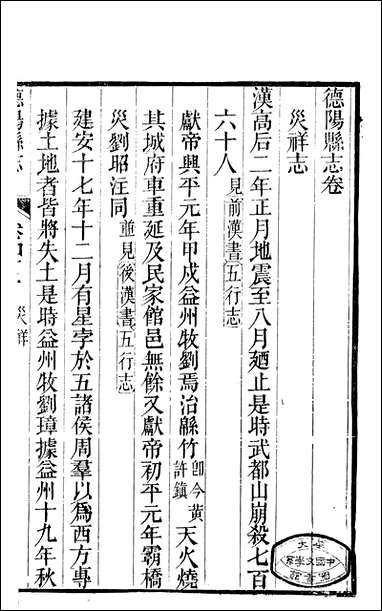 德陽縣志卷
災祥志
漢高后二年正月地震至八月廼止是時武都山崩殺七百
六十人見前漢書五行志
獻帝興平元年甲戌益州牧劉焉治緜竹卽今黄許鎮天火燒
其城府車重延及民家館邑無餘又獻帝初平元年霸橋
災劉昭注同並見後漢書五行志
建安十七年十二月有星孛於五諸侯周羣以爲西方專
據土地者皆將失土是時益州牧劉璋據益州十九年秋
德陽縣志
災祥